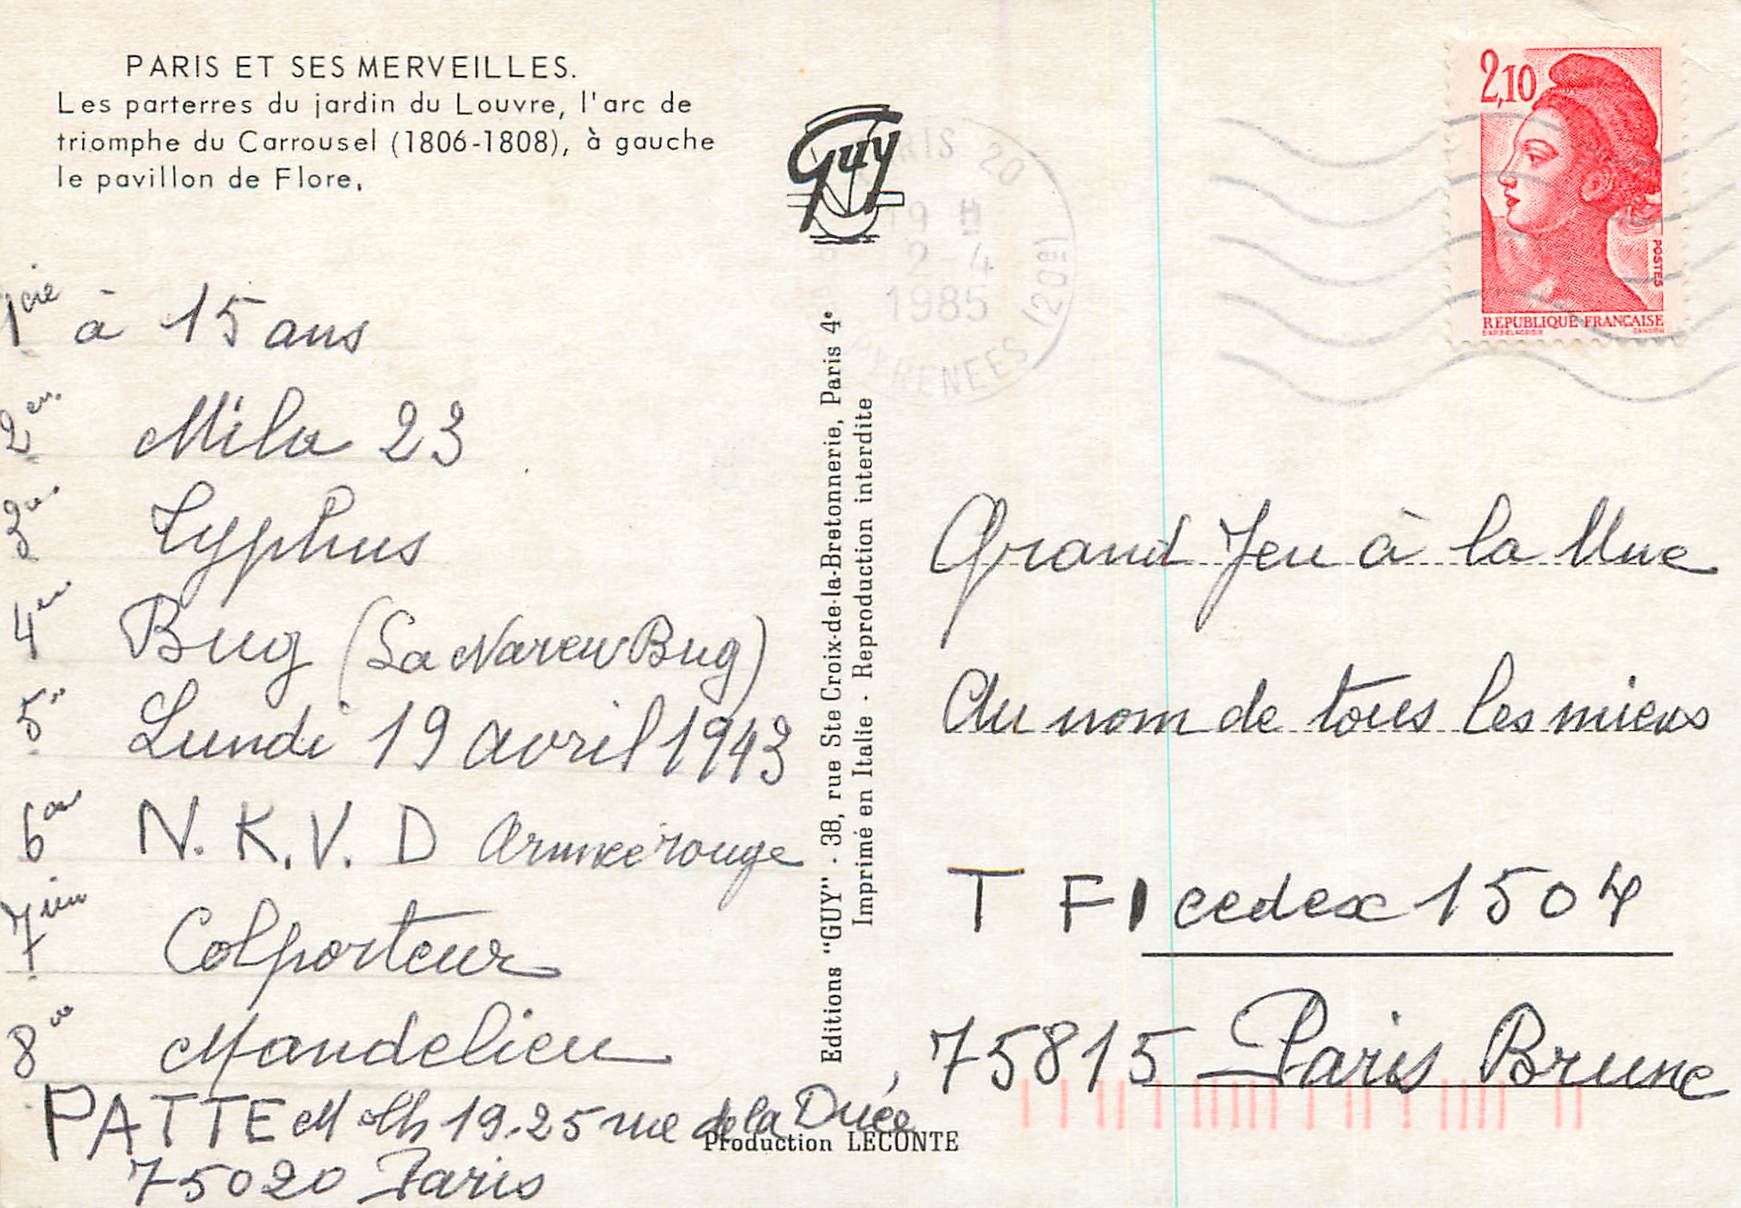 PARIS ET SES MERVEILLES.
Les parterres du jardin du Louvre, l'arc de
triomphe du Carrousel (1806-1808), à gauche
le pavillon de Flore,
Guy
PARIS 20
19 H
2-4
1985
PYRENEES (20e)
2,10
POSTES
REPUBLIQUE FRANÇAISE
1ere à 15 ans
2en Mila 23
3en Typhus
4en Bug (La Narew Bug)
5en Lundi 19 avril 1943
6en N.K.V.D Armée rouge
7ien Colporteur
8en Mandelieu
PATTE 19.25 rue de la Duée
75020 Paris
Editions "GUY" - 38, rue Ste Croix-de-la-Bretonnerie, Paris 4e
Imprimé en Italie - Reproduction interdite
Production LECONTE
Grand Jeu à la Une
Au nom de tous les miens
T F1 cedex 1504
75815 Paris Brune